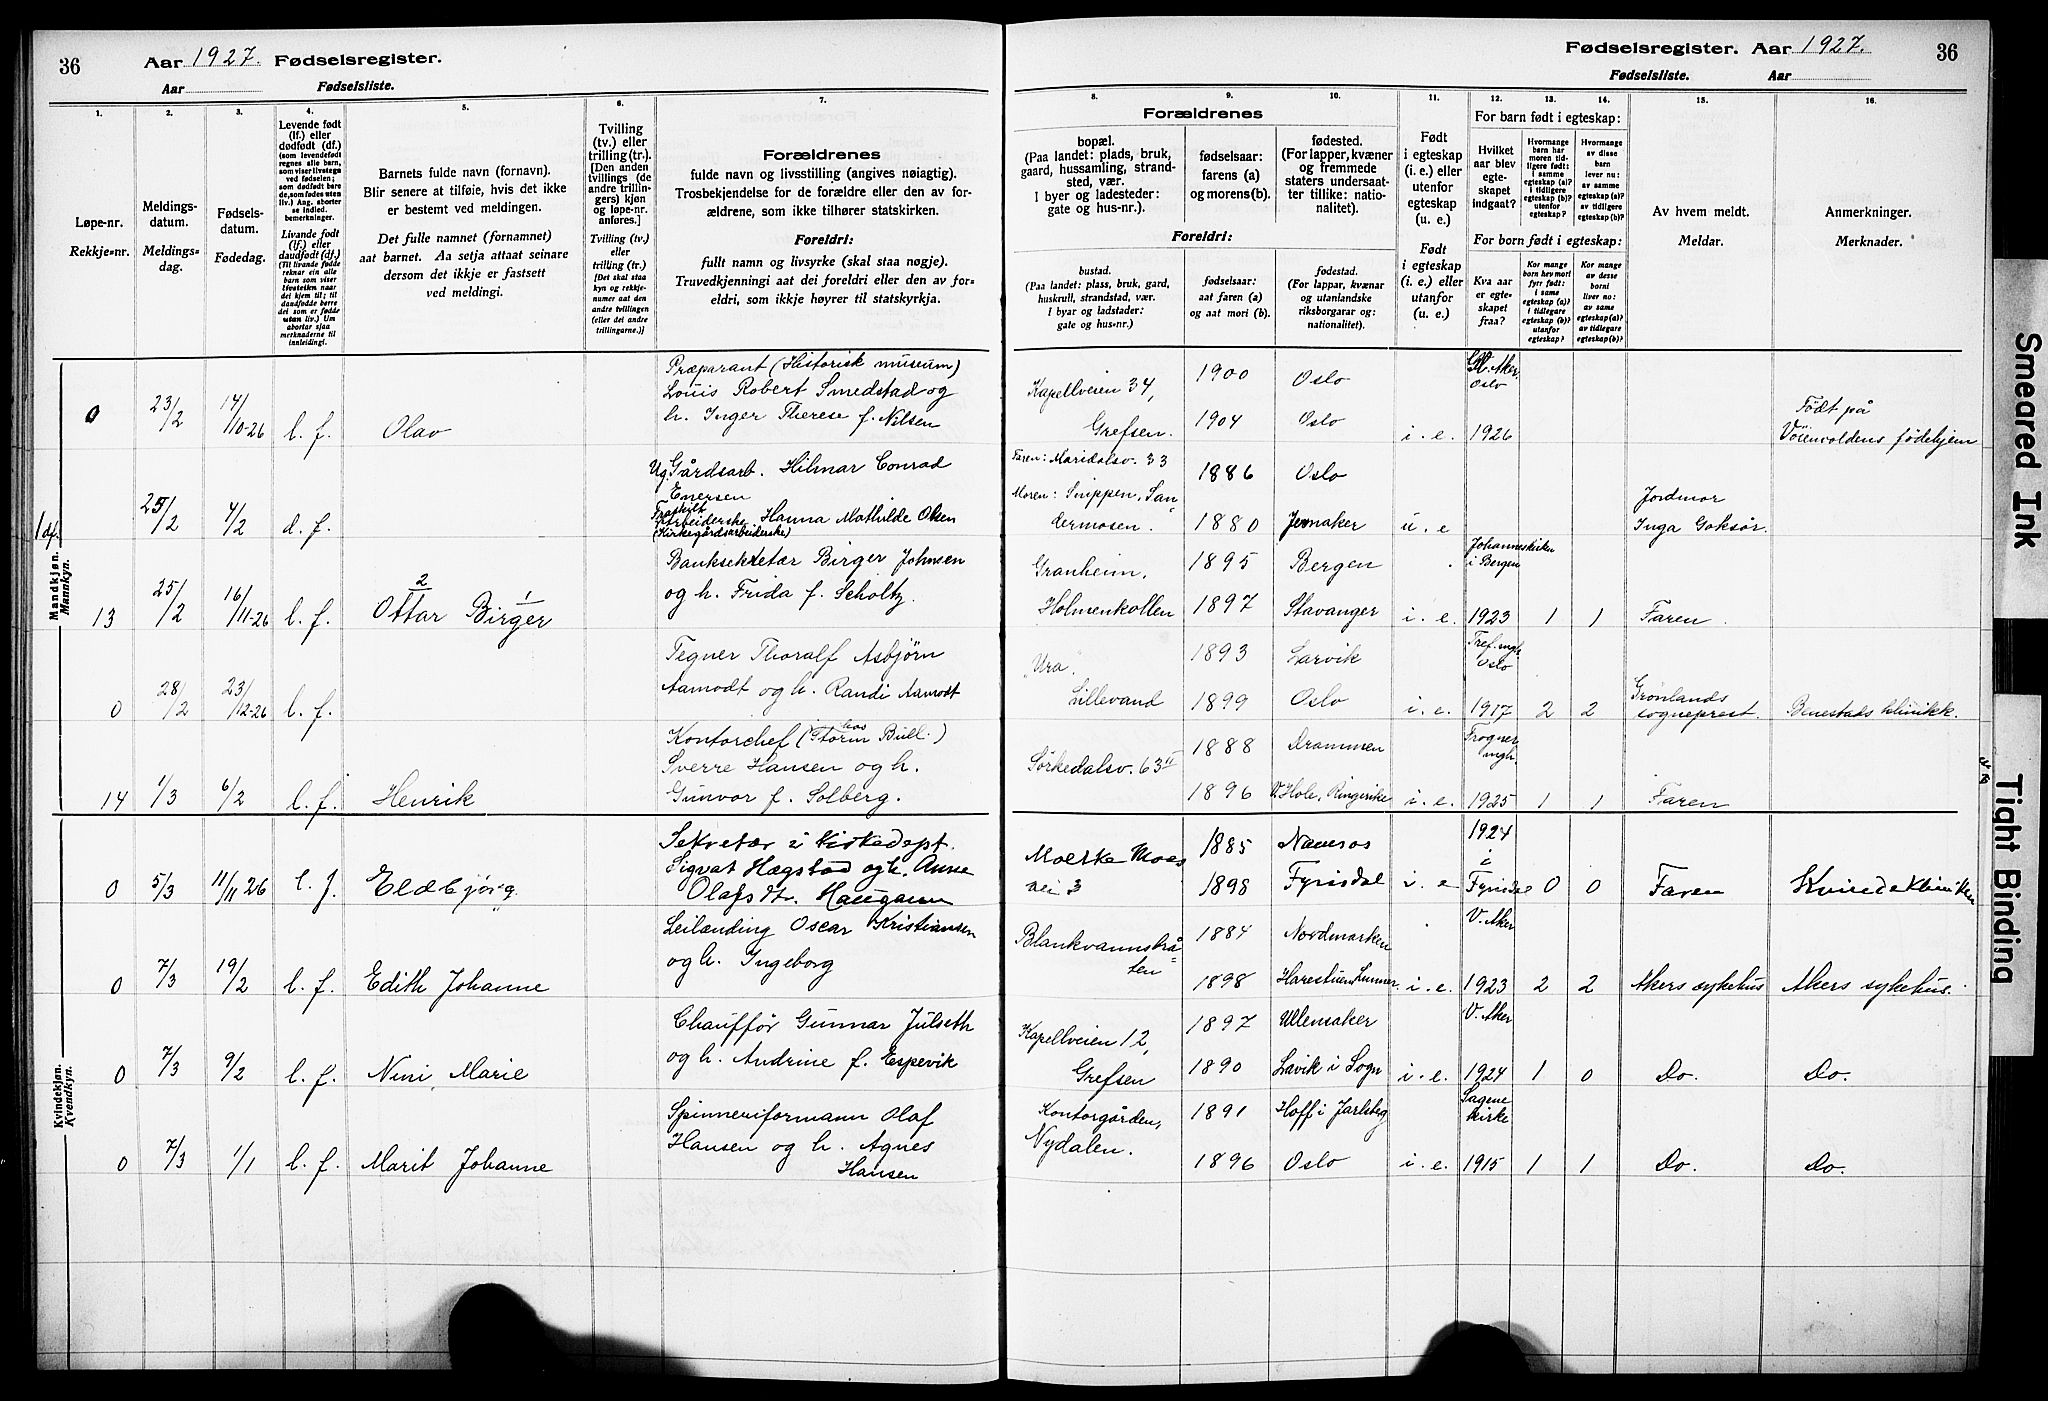 36
Aar 1927. Fødselsregister.
Aar Fødselsliste.
Fødselsregister. Aar 1927.
36
Fødselsliste. Aar
1.
2.
3.
4.
5.
6.
7.
8.
9.
10.
11.
12.
13.
14.
15.
16.
Løpe-nr.
Rekkje-nr.
Meldings-
datum.
Meldings-
dag.
Fødsels-
datum.
Fødedag.
Levende født
(lf.) eller
dødfødt (df.)
(som levendefødt
regnes alle barn,
som viser livstegn
ved fødselen;
som dødfødt bare
de, som fødes uten
liv.) Ang. aborter
se indled.
bemerkninger.
Livande født
(lf.) eller
daudfødt (df.)
(Til livande fødde
reknar ein alle
barn som viser
livsteikn naar
dei kjem til; til
daudfødde børre
dei som er fødde
utan liv.) Um
abortar sjaa
merknaderne til
innleidingi.
Barnets fulde navn (fornavn).
Blir senere at tilføie, hvis det ikke
er bestemt ved meldingen.
Det fulle namnet (fornamnet)
aat barnet. Aa setja attaat seinare
dersom det ikkje er fastsett
ved meldingi.
Tvilling
(tv.) eller
trilling (tr.).
[Den anden
tvillings (de
andre trillin-
gers) kjøn
og løpe-nr.
anføres.]
Tvilling (tv.)
eller
trilling (tr.)
[Det skal staa
kyn og rekkje-
numer aat den
andre tvillingen
(eller dei andre
trillingarne.)]
Forældrenes
fulde navn og livsstilling (angives nøiagtig).
Trosbekjendelse for de forældre eller den av for-
ældrene, som ikke tilhører statskirken.
Foreldri:
fullt namn og livsyrke (skal staa nøgje).
Truvedkjenningi aat dei foreldri eller den av for-
eldri, som ikkje høyrer til statskyrkja.
Forældrenes
bopæl.
(Paa landet: plads, bruk,
gaard, hussamling, strand-
sted, vær.
I byer og ladesteder:
gate og hus-nr.).
fødselsaar:
farens (a)
og morens(b).
fødested.
(For lapper, kvæner
og fremmede
staters undersaat-
ter tillike: natio-
nalitet).
Foreldri:
bustad.
(Paa landet: plass, bruk, gard,
huskrull, strandstad, vær.
I byar og ladstader:
gate og hus-nr.)
fødselsaar:
aat faren (a)
og aat mori (b).
fødestad.
(For lappar, kvænar
og utanlandske
riksborgarar og:
nationalitet).
Født
i egteskap
(i. e.) eller
utenfor
egteskap
(u. e.)
Født
i egteskap
(i. e.) eller
utanfor
(u. e.)
For barn født i egteskap:
Hvilket
aar blev
egte-
skapet
indgaat?
Hvormange
barn har
moren tid-
ligere født:
i samme
egteskap (a)?
i tidligere
egteskap (b)?
utenfor
egteskap?
Hvormange
av disse
barn
lever nu:
av samme
egteskap (a)?
av tidligere
egteskap (b)?
For born født i egteskap:
Kva aar
er egte-
skapet
fraa?
Kor mange
barn hev mori
fyrr født:
i same
egteskap (a)?
i tidlegare
egteskap (b)?
utanfor
egteskap?
Kor mange
av desse
borni
liver no:
av same
egteskap (a)?
av tidlegare
egteskap (b)?
Av hvem meldt.
Meldar.
Anmerkninger.
Merknader.
Mandkjøn.
Mannkyn.
0
23/2
14/10-26
l. f.
Olav
Præparant (Historisk museum)
Louis Robert Smedstad og
h. Inger Therese f. Nilsen
Kapellveien 34,
Grefsen.
1900
1904
Oslo
Oslo
i. e.
Gl. Aker.
Oslo
1926
Født på
Vöienvoldens fødehjem
1 df.
25/2
4/2
d. f.
Ug. Gårdsarb. Hilmar Conrad
Enersen
Fraskilt
Arbeiderske Hanna Mathilde Olsen
(Kirkegårdsarbeiderske)
Faren: Maridalsv. 33
Moren: Snippen, San-
dermosen.
1886
1880
Oslo
Jevnaker
u. e
Jordmor
Inga Goksör.
13
25/2
16/11-26
l. f.
2 1
Ottar Birger
Banksekretær Birger Johnsen
og h. Frida f. Scholtz.
Granheim,
Holmenkollen
1895
1897
Bergen
Stavanger
i. e.
Johanneskirken
i Bergen
1923
1
1
Faren.
0
28/2
23/12-26
l. f.
Tegner Thoralf Asbjörn
Aamodt og h. Randi Aamodt
"Ura",
Lillevand
1893
1899
Larvik
Oslo
i. e.
Tref. mgh.
Oslo
1917
2
2
Grønlands
sogneprest.
Benestads klinikk.
14
1/3
6/2
l. f.
Henrik
Kontorchef (hos Storm Bull.)
Sverre Hansen og h.
Gunvor f. Solberg.
Sörkedalsv. 63 II
1888
1896
Drammen
Hole, Ringerike
i. e.
Frogner
mgh.
1925
1
1
Faren
Kvindekjøn.
Kvendkyn.
0
5/3
11/11 26
l. f.
Eldbjörg
Sekretær i Kirkedept.
Sigvat Hægstad og h. Anne
Olafsdtr. Haugann
Moltke Moes
vei 3
1885
1898
Fyrisdal
i. e
1924
i
Fyrisdal
0
0
Faren
Kvindeklinikken
0
7/3
19/2
l. f.
Edith Johanne
Leilænding Oscar Kristiansen
og h. Ingeborg
Blankvannsbrå-
ten
1884
1898
Nordmarken
Harestuen Lunner
i. e.
V. Aker
1923
2
2
Akers sykehus
Akers sykehus.
0
7/3
9/2
l. f.
Nini Marie
Chauffør Gunnar Julseth
og h. Andrine f. Espevik
Kapellveien 12,
Grefsen
1897
1890
Ullensaker
Lavik i Sogn
i. e.
V. Aker
1924
1
0
Do.
Do.
0
7/3
1/1
l. f.
Marit Johanne
Spinneriformann Olaf
Hansen og h. Agnes
Hansen
Kontorgården,
Nydalen.
1891
1896
Hoff i Jarlsbeg
Oslo
i. e.
Sagene
kirke
1915
1
1
Do.
Do.
Smeared Ink
Tight Binding